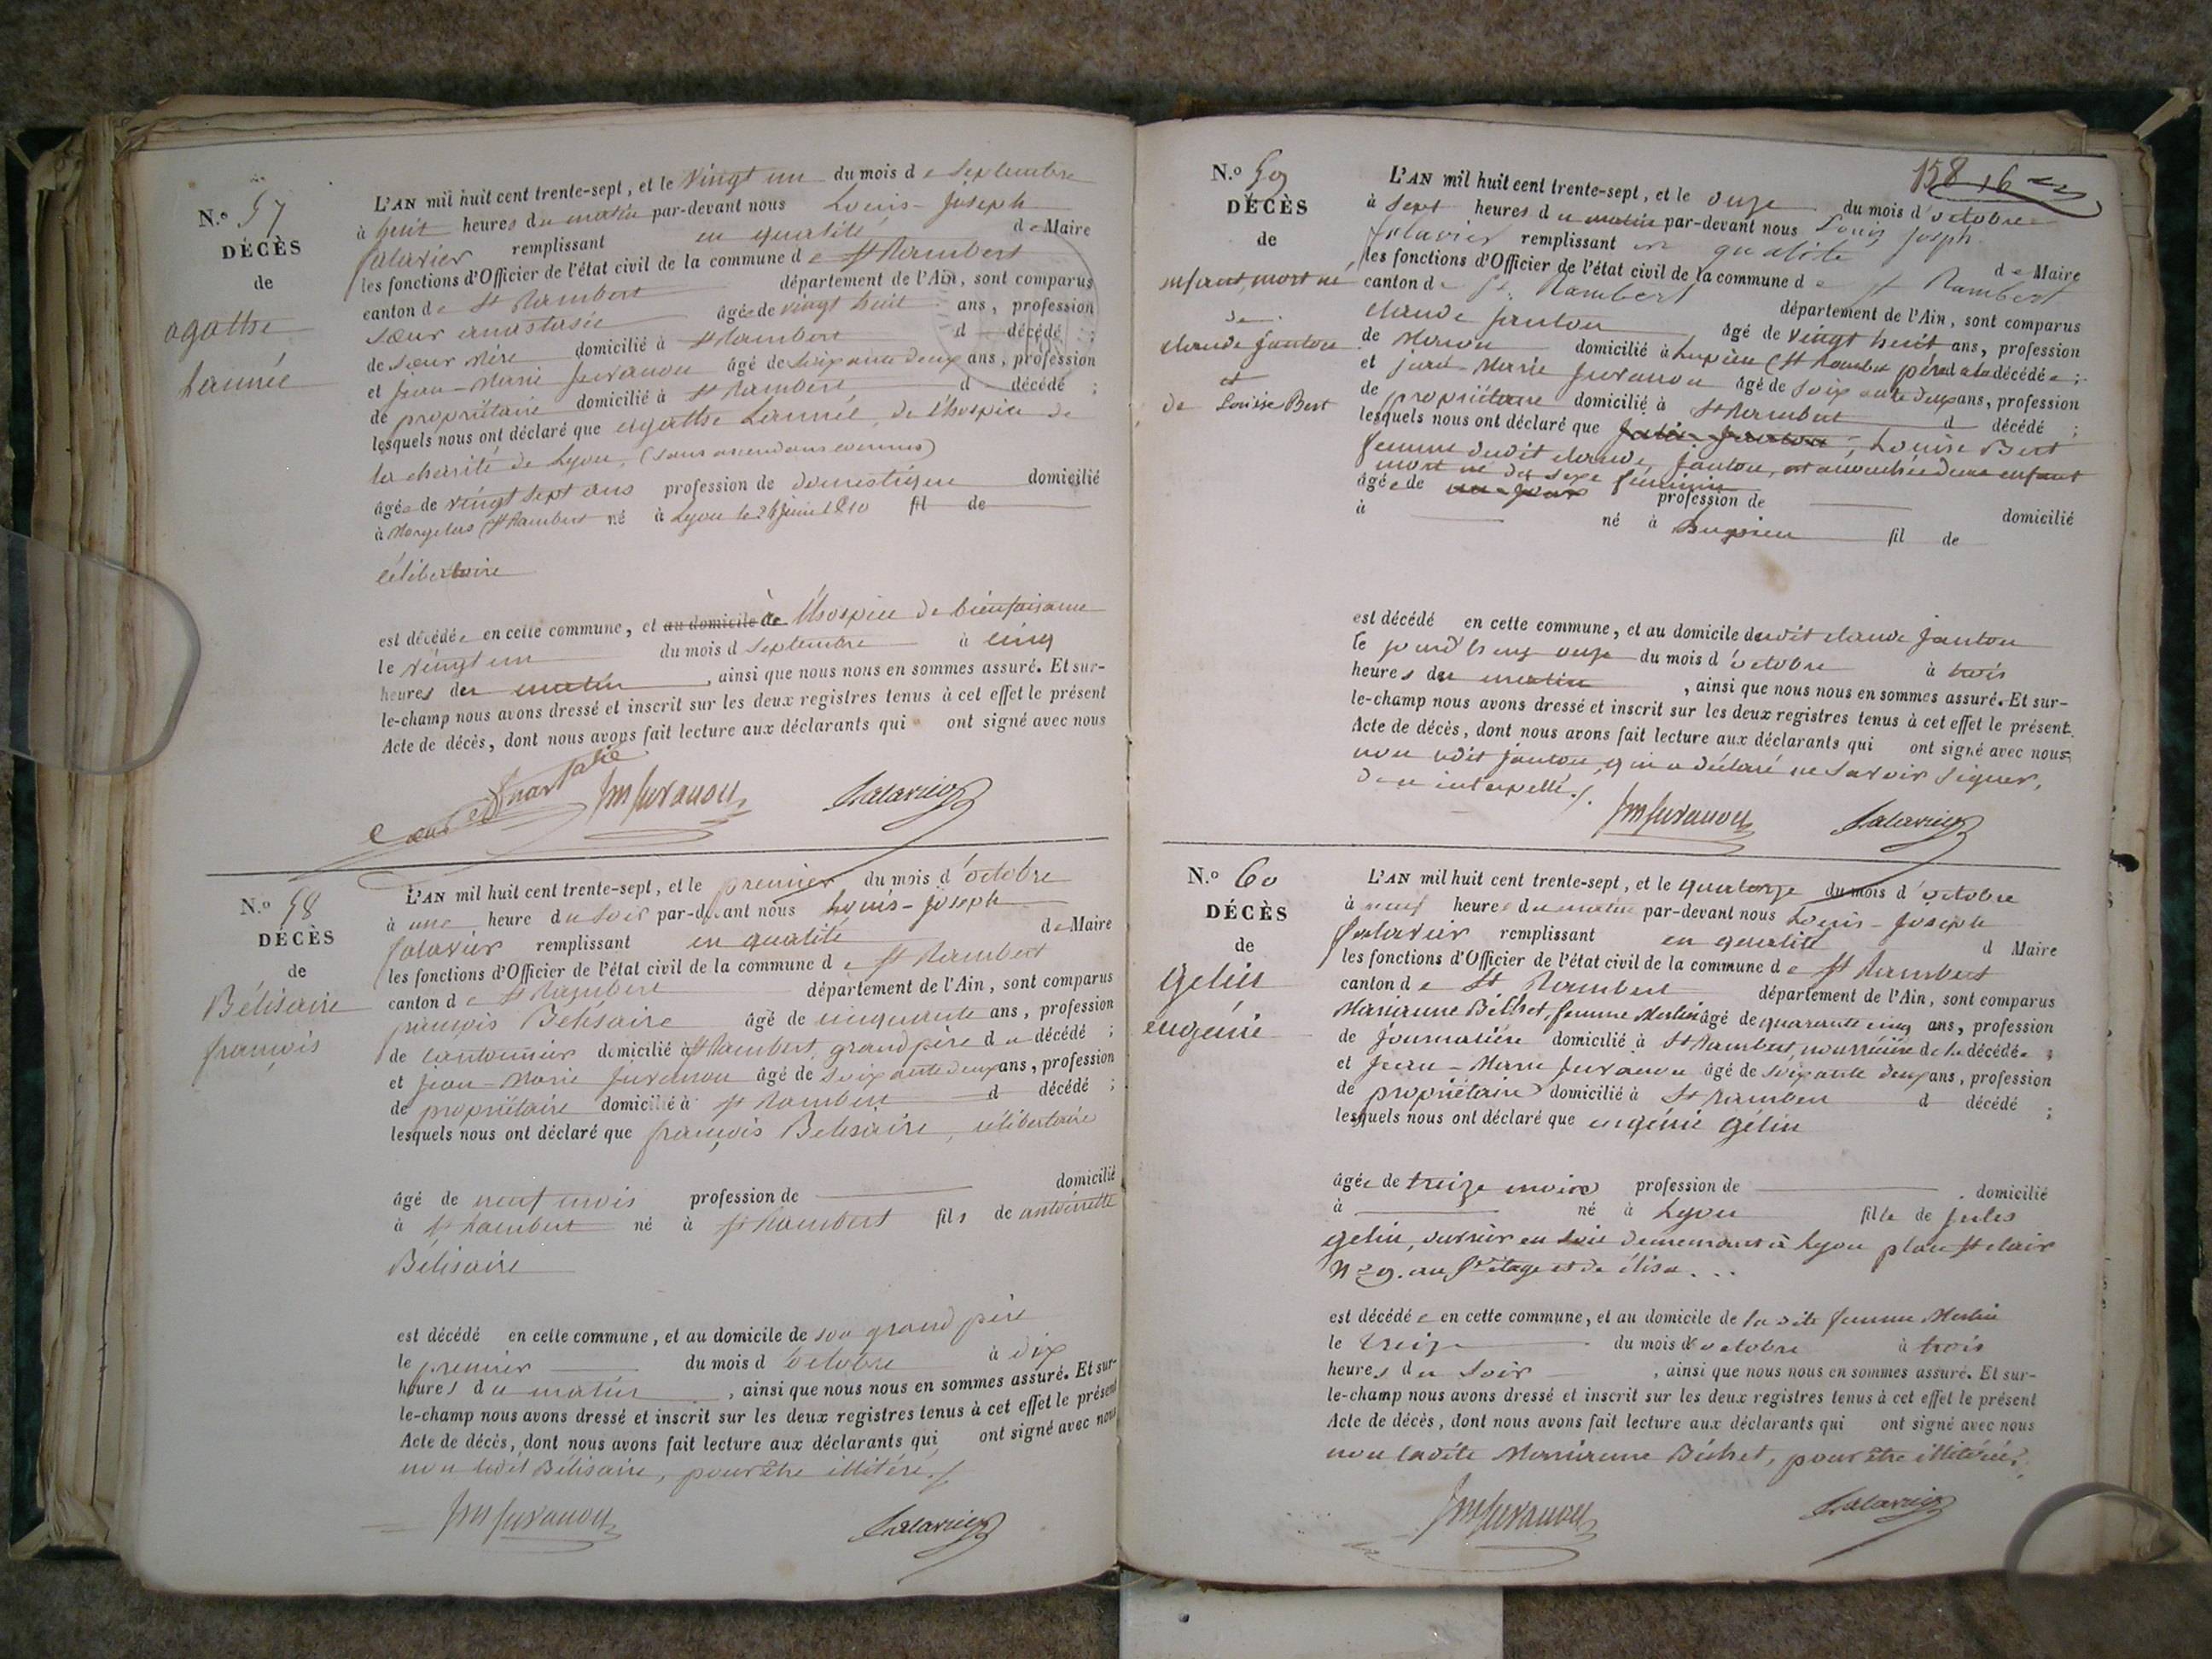 N.o 57
DÉCÈS
de
agathe
Lannée
L'AN mil huit cent trente-sept, et le vingt un du mois de Septembre
à huit heures du matin par-devant nous Louis-Joseph
Salavier remplissant en qualité de Maire
les fonctions d'Officier de l'état civil de la commune de St Rambert
canton de St Rambert département de l'Ain, sont comparus
Sœur anastasie âgée de vingt huit ans, profession
de Sœur Mère domicilié à St Rambert d décédé ;
et jean-Marie Juvanon âgé de soixante deux ans, profession
de propriétaire domicilié à St Rambert d décédé ;
lesquels nous ont déclaré que agathe Lannée, de l'hospice de
la charité de Lyon, (sans ascendans connus)
âgée de vingt sept ans profession de domestique domicilié
à (St Rambert né à Lyon le 26 juin 1810 fil de
célibataire
est décédée en cette commune, et au domicile de à l'hospice de bienfaisance
le vingt un du mois d Septembre à cinq
heures du matin, ainsi que nous nous en sommes assuré. Et sur-
le-champ nous avons dressé et inscrit sur les deux registres tenus à cet effet le présent
Acte de décès, dont nous avons fait lecture aux déclarants qui ont signé avec nous
Sœur Anastasie JM Juvanon Salavier
N.o 58
DÉCÈS
de
Bélisaire
françois
L'AN mil huit cent trente-sept, et le premier du mois d'octobre
à une heure du soir par-devant nous Louis-Joseph
Salavier remplissant en qualité de Maire
les fonctions d'Officier de l'état civil de la commune de St Rambert
canton de St Rambert département de l'Ain, sont comparus
françois Bélisaire âgé de cinquante ans, profession
de cantonnier domicilié à St Rambert, grand père du décédé ;
et jean-Marie Juvanon âgé de soixante deux ans, profession
de propriétaire domicilié à St Rambert d décédé ;
lesquels nous ont déclaré que françois Belisaire, célibataire
âgé de neuf mois profession de domicilié
à St Rambert né à St Rambert fils de antoinette
Bélisaire
est décédé en cette commune, et au domicile de son grand père
le premier du mois d'octobre à dix
heures du matin, ainsi que nous nous en sommes assuré. Et sur-
le-champ nous avons dressé et inscrit sur les deux registres tenus à cet effet le présent
Acte de décès, dont nous avons fait lecture aux déclarants qui ont signé avec nous
non ledit Bélisaire, pour être illitéré./.
JM Juvanon Salavier
158
N.o 59
DÉCÈS
de
enfant mort né
de
claude Janton
et
de Louise Bert
L'AN mil huit cent trente-sept, et le onze du mois d'octobre
à Sept heures du matin par-devant nous Louis Joseph
Salavier remplissant en qualité de Maire
les fonctions d'Officier de l'état civil de la commune de St Rambert
canton de St Rambert département de l'Ain, sont comparus
claude Janton âgé de vingt huit ans, profession
de Maçon domicilié à (St Rambert père de la décédée ;
et jean-Marie Juvanon âgé de soixante deux ans, profession
de propriétaire domicilié à St Rambert d décédé ;
lesquels nous ont déclaré que Louise Bert
femme dudit claude Janton, est accouchée d'une enfant
mort né du sexe féminin
âgée de un jour profession de domicilié
à né à fil de
est décédé en cette commune, et au domicile dudit claude Janton
le jourd'huy onze du mois d'octobre à trois
heures du matin, ainsi que nous nous en sommes assuré. Et sur-
le-champ nous avons dressé et inscrit sur les deux registres tenus à cet effet le présent
Acte de décès, dont nous avons fait lecture aux déclarants qui ont signé avec nous
non ledit Janton, qui a déclaré ne savoir signer,
de ce interpellé./.
JM Juvanon Salavier
N.o 60
DÉCÈS
de
Gelin
eugénie
L'AN mil huit cent trente-sept, et le quatorze du mois d'octobre
à neuf heures du matin par-devant nous Louis-Joseph
Salavier remplissant en qualité d Maire
les fonctions d'Officier de l'état civil de la commune de St Rambert
canton de St Rambert département de l'Ain, sont comparus
Marianne Béchet, femme Merlin âgé de quarante cinq ans, profession
de Journalière domicilié à St Rambert, nourricière de la décédée ;
et jean-Marie Juvanon âgé de soixante deux ans, profession
de propriétaire domicilié à St Rambert d décédé ;
lesquels nous ont déclaré que eugénie Gélin
âgée de treize mois profession de domicilié
à né à Lyon fille de Jules
gelin, ouvrier en soie demeurant à Lyon place St clair
N° 9. au étage et de élisa...
est décédée en cette commune, et au domicile de la dite femme Merlin
le treize du mois d'octobre à trois
heures du soir, ainsi que nous nous en sommes assuré. Et sur-
le-champ nous avons dressé et inscrit sur les deux registres tenus à cet effet le présent
Acte de décès, dont nous avons fait lecture aux déclarants qui ont signé avec nous
non ladite Marianne Béchet, pour être illitérée.
JM Juvanon Salavier